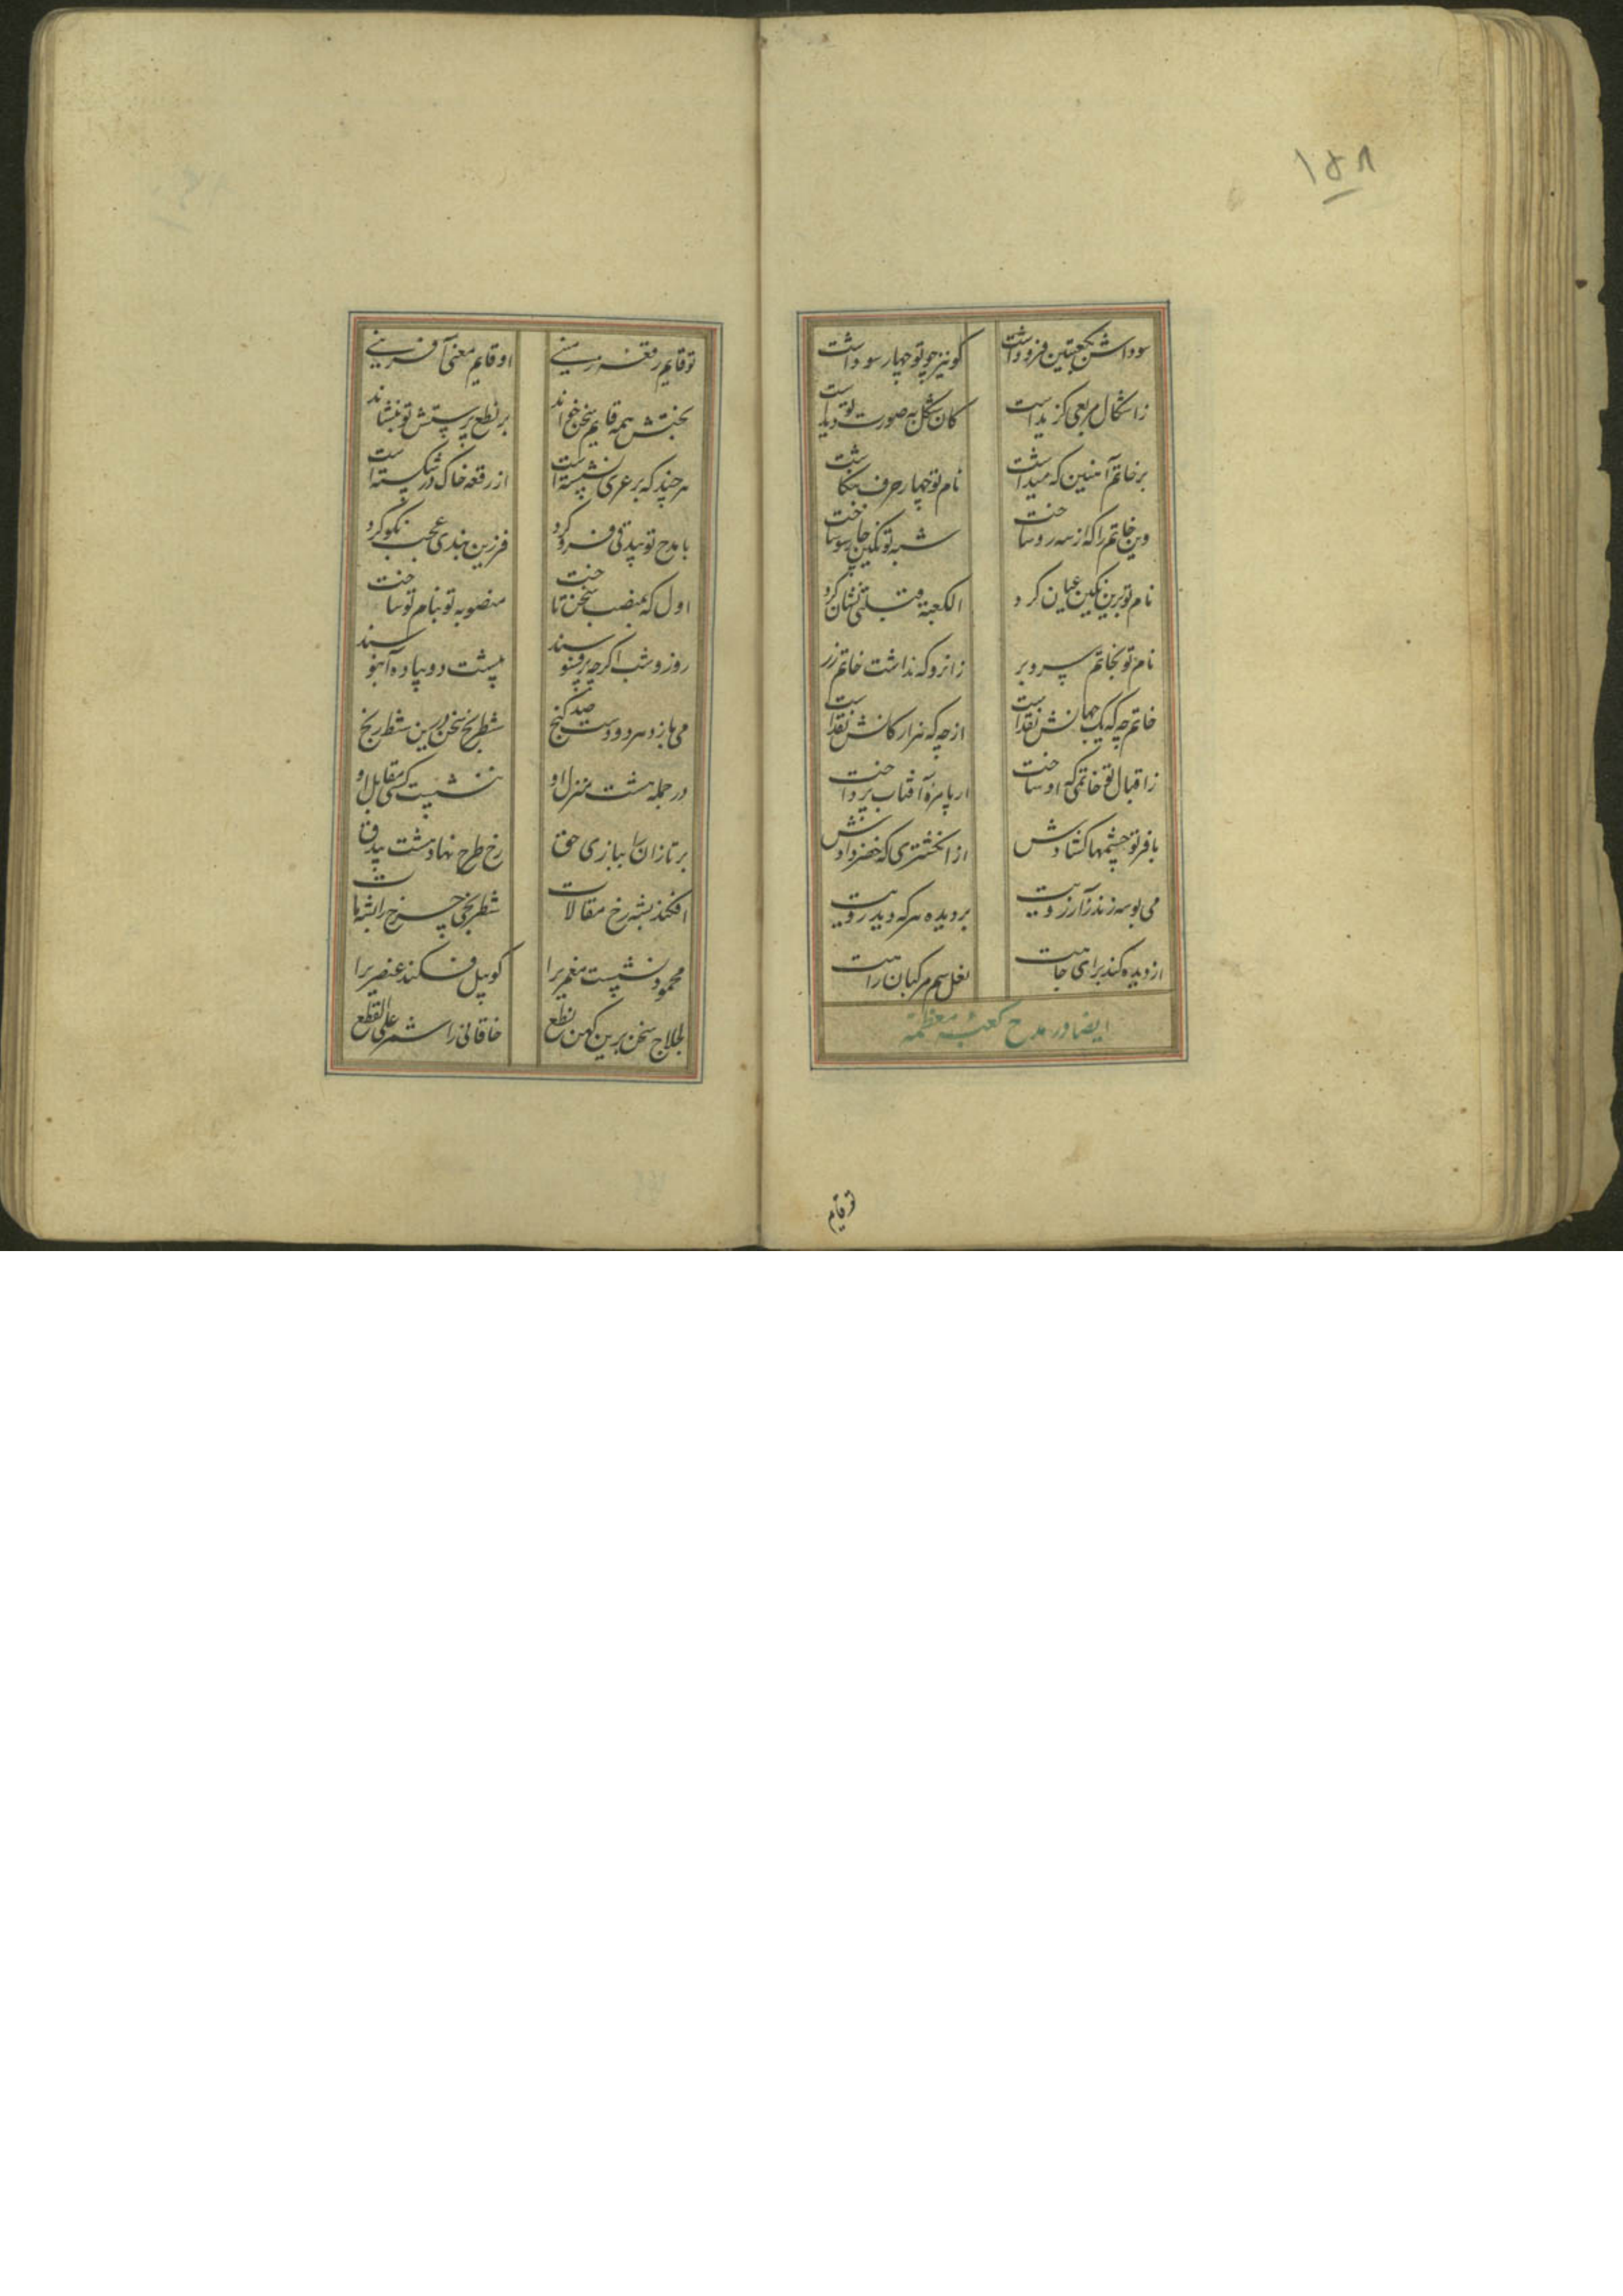 ۱۵۸
سوداش بکعبتین فزو داشت کو نیز چو تو چهار سو داشت
ز اشکال مربعی گزیداست کان شکل به صورت تو دیداست
بر خاتم آهنین که میداشت نام تو چهار حرف بنگاشت
وین خاتم را که از سه رو ساخت شبه تو نگین چارسو ساخت
نام تو برین نگین عیان کرد الکعبة قبلتی نشان کرد
نام تو بخاتم سر و بر زانرو که نداشت خاتم زر
خاتم چه که یک جهانش نقداست از چه که هزار کانش نقداست
ز اقبال تو خاتمی که او ساخت ار پامزه آفتاب پرداخت
با فر تو چشمها گشادش از انگشتری که خضر دادش
می بوسه زند ز آرزویت بر دیده هر که دید رویت
از دیده کند برای جاهت نعل سم مرکبان راهت
ایضا در مدح کعبه معظمه
تو قایم
تو قایم رقعه زمینی او قایم معنی آفرینی
بختش همه قایم سخن خواند بر نطع پرستش تو بنشاند
هر چند که بر عری نشسته است از رقعه خاک در شکسته است
با مدح تو بیدقی فرو کرد فرزین بندی عجب نکو کرد
اول که بمنصب سخن تاخت منصوبه تو بنام تو ساخت
روز و شب اگرچه پر فسوسند پشت دو پیاده آبنوسند
می بازد هر دو دست صد گنج شطرنج سخن درین شطرنج
در جمله هشت منزل او ننشست کسی مقابل او
بر تازان را ببازی حق رخ طرح نهاد هشت بیدق
افکند بشه رخ مقالات شطرنجی چرخ را بشه مات
محمود نشست مغمری را کو پیل فکند عنصری را
لجلاج سخن برین کهن نطع خاقانی را شمر علی القطع